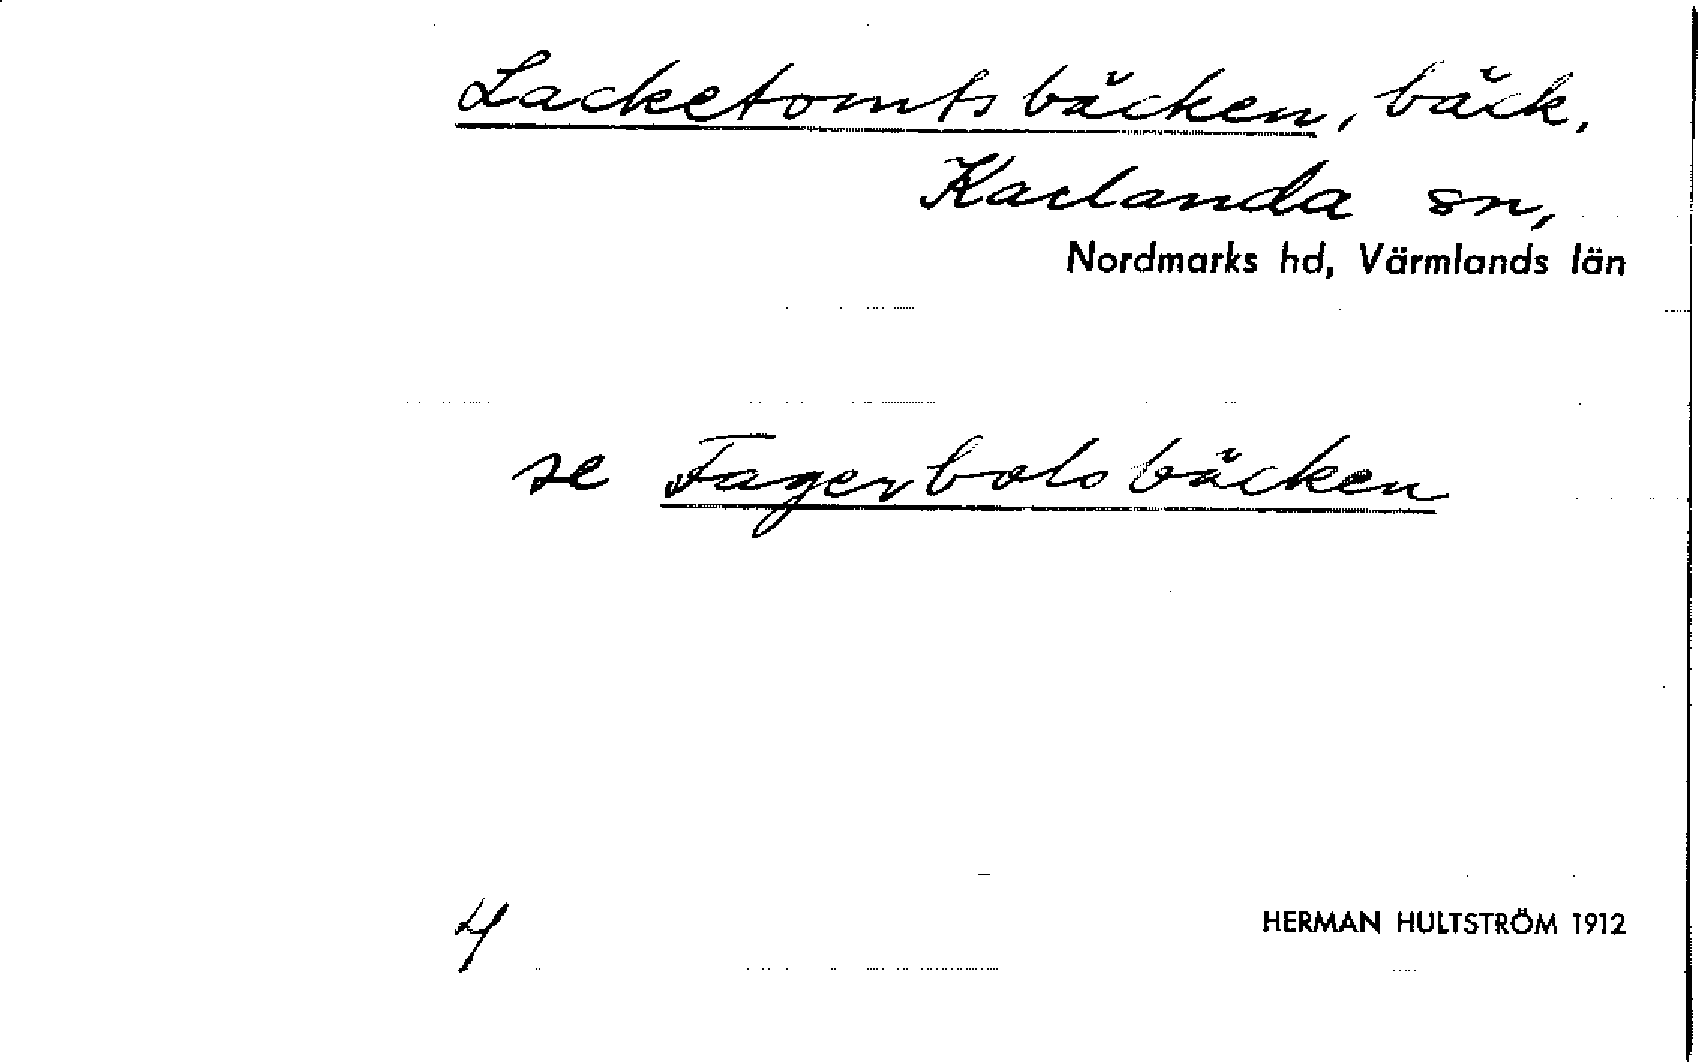 Lacketomtsbäcken, bäck,
Karlanda sn,
Nordmarks hd, Värmlands län
se Fagerbolsbäcken
4
HERMAN HULTSTRÖM 1912